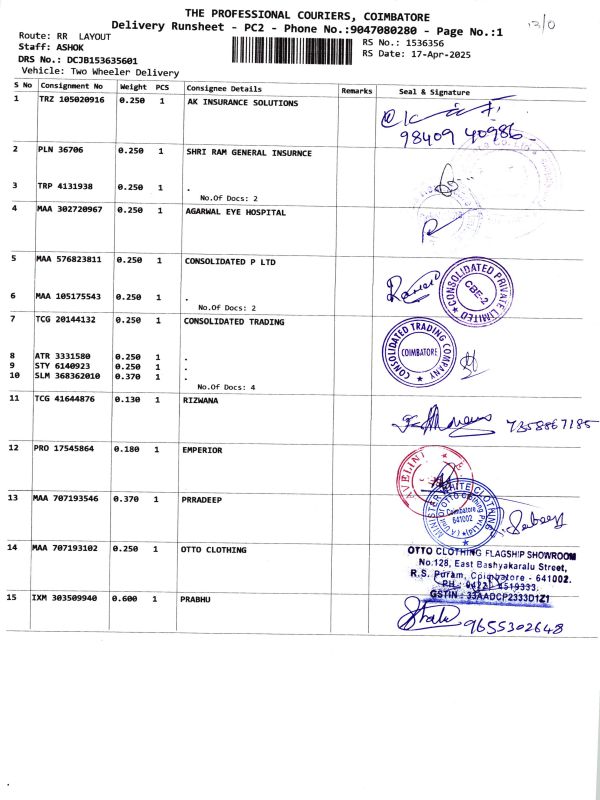 THE PROFESSIONAL COURIERS, COIMBATORE
Delivery Runsheet - PC2 - Phone No.:9047080280 - Page No.:1
13/0
Route: RR LAYOUT
RS No.: 1536356
Staff: ASHOK
RS Date: 17-Apr-2025
DRS No.: DCJB153635601
Vehicle: Two Wheeler Delivery
S No Consignment No Weight PCS Consignee Details Remarks Seal & Signature
1 TRZ 105020916 0.250 1 AK INSURANCE SOLUTIONS
98409 40986
2 PLN 36706 0.250 1 SHRI RAM GENERAL INSURNCE
3 TRP 4131938 0.250 1 .
No.Of Docs: 2
4 MAA 302720967 0.250 1 AGARWAL EYE HOSPITAL
5 MAA 576823811 0.250 1 CONSOLIDATED P LTD
CONSOLIDATED PRIVATE LIMITED
CBE-2
6 MAA 105175543 0.250 1 .
No.Of Docs: 2
7 TCG 20144132 0.250 1 CONSOLIDATED TRADING
CONSOLIDATED TRADING COMPANY
COIMBATORE
8 ATR 3331580 0.250 1 .
9 STY 6140923 0.250 1 .
10 SLM 368362010 0.370 1 .
No.Of Docs: 4
11 TCG 41644876 0.130 1 RIZWANA
7358867185
12 PRO 17545864 0.180 1 EMPERIOR
AVELINI
13 MAA 707193546 0.370 1 PRRADEEP
MINISTAR WHITE CLOTHING
(A Unit Of OTTO Clothing Pvt Ltd)
Coimbatore
641002
14 MAA 707193102 0.250 1 OTTO CLOTHING
OTTO CLOTHING FLAGSHIP SHOWROOM
No:128, East Bashyakaralu Street,
R.S. Puram, Coimbatore - 641002.
PH : 0422 - 4519333.
GSTIN : 33AADCP2333D1Z1
15 IXM 303509940 0.600 1 PRABHU
9655302648